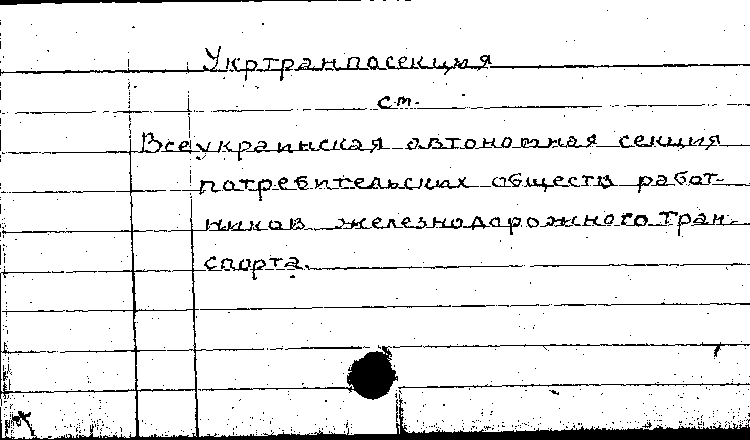 Укртранпосекция
см.
Всеукраинская автономная секция
потребительских обществ работ-
ников железнодорожного тран-
спорта.